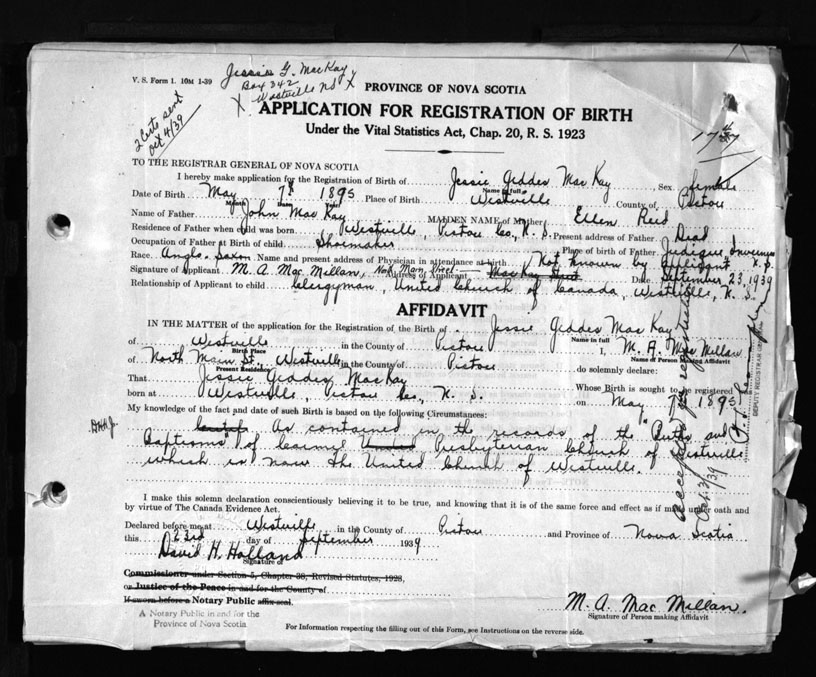 V. S. Form 1. 10M 1-39
Jessie G. MacKay
Box 342
X Westville NS X
2 Certs sent
Oct 4/39
PROVINCE OF NOVA SCOTIA
APPLICATION FOR REGISTRATION OF BIRTH
Under the Vital Statistics Act, Chap. 20, R. S. 1923
TO THE REGISTRAR GENERAL OF NOVA SCOTIA
I hereby make application for the Registration of Birth of Jessie Geddes MacKay Sex Female
Name in full
Date of Birth May 7th 1895 Place of Birth Westville County of Pictou
Month Day Year
Name of Father John MacKay MAIDEN NAME of Mother Ellen Reid
Residence of Father when child was born Westville, Pictou Co., N. S. Present address of Father Dead
Occupation of Father at Birth of child Shoemaker Place of birth of Father Judique, Inverness
Race Anglo-Saxon Name and present address of Physician in attendance at birth Not known by applicant N. S.
Signature of Applicant M. A. MacMillan, Address of Applicant North Main Street MacKay Street Date September 23, 1939
Relationship of Applicant to child Clergyman, United Church of Canada, Westville, N. S.
AFFIDAVIT
IN THE MATTER of the application for the Registration of the Birth of Jessie Geddes MacKay
Name in full
of Westville in the County of Pictou I, M. A. MacMillan
Birth Place Name of Person Making Affidavit
of North Main St. Westville in the County of Pictou do solemnly declare:
Present Residence
That Jessie Geddes MacKay Whose Birth is sought to be registered
born at Westville, Pictou Co., N. S. on May 7th 1895
My knowledge of the fact and date of such Birth is based on the following Circumstances:
D.H.H. As contained in the records of the "Births and
Baptisms" of Carmel United Presbyterian Church of Westville
which is now the United Church of Westville.
Accepted for registration
Oct. 3/39
DEPUTY REGISTRAR GENERAL
I make this solemn declaration conscientiously believing it to be true, and knowing that it is of the same force and effect as if made under oath and
by virtue of The Canada Evidence Act.
Declared before me at Westville in the County of Pictou and Province of Nova Scotia
this 23rd day of September 1939
David H. Holland
Signature of
Commissioner under Section 5, Chapter 38, Revised Statutes, 1923,
or Justice of the Peace in and for the County of
If sworn before a Notary Public affix seal.
A Notary Public in and for the
Province of Nova Scotia
M. A. MacMillan.
Signature of Person making Affidavit
For Information respecting the filling out of this Form, see Instructions on the reverse side.